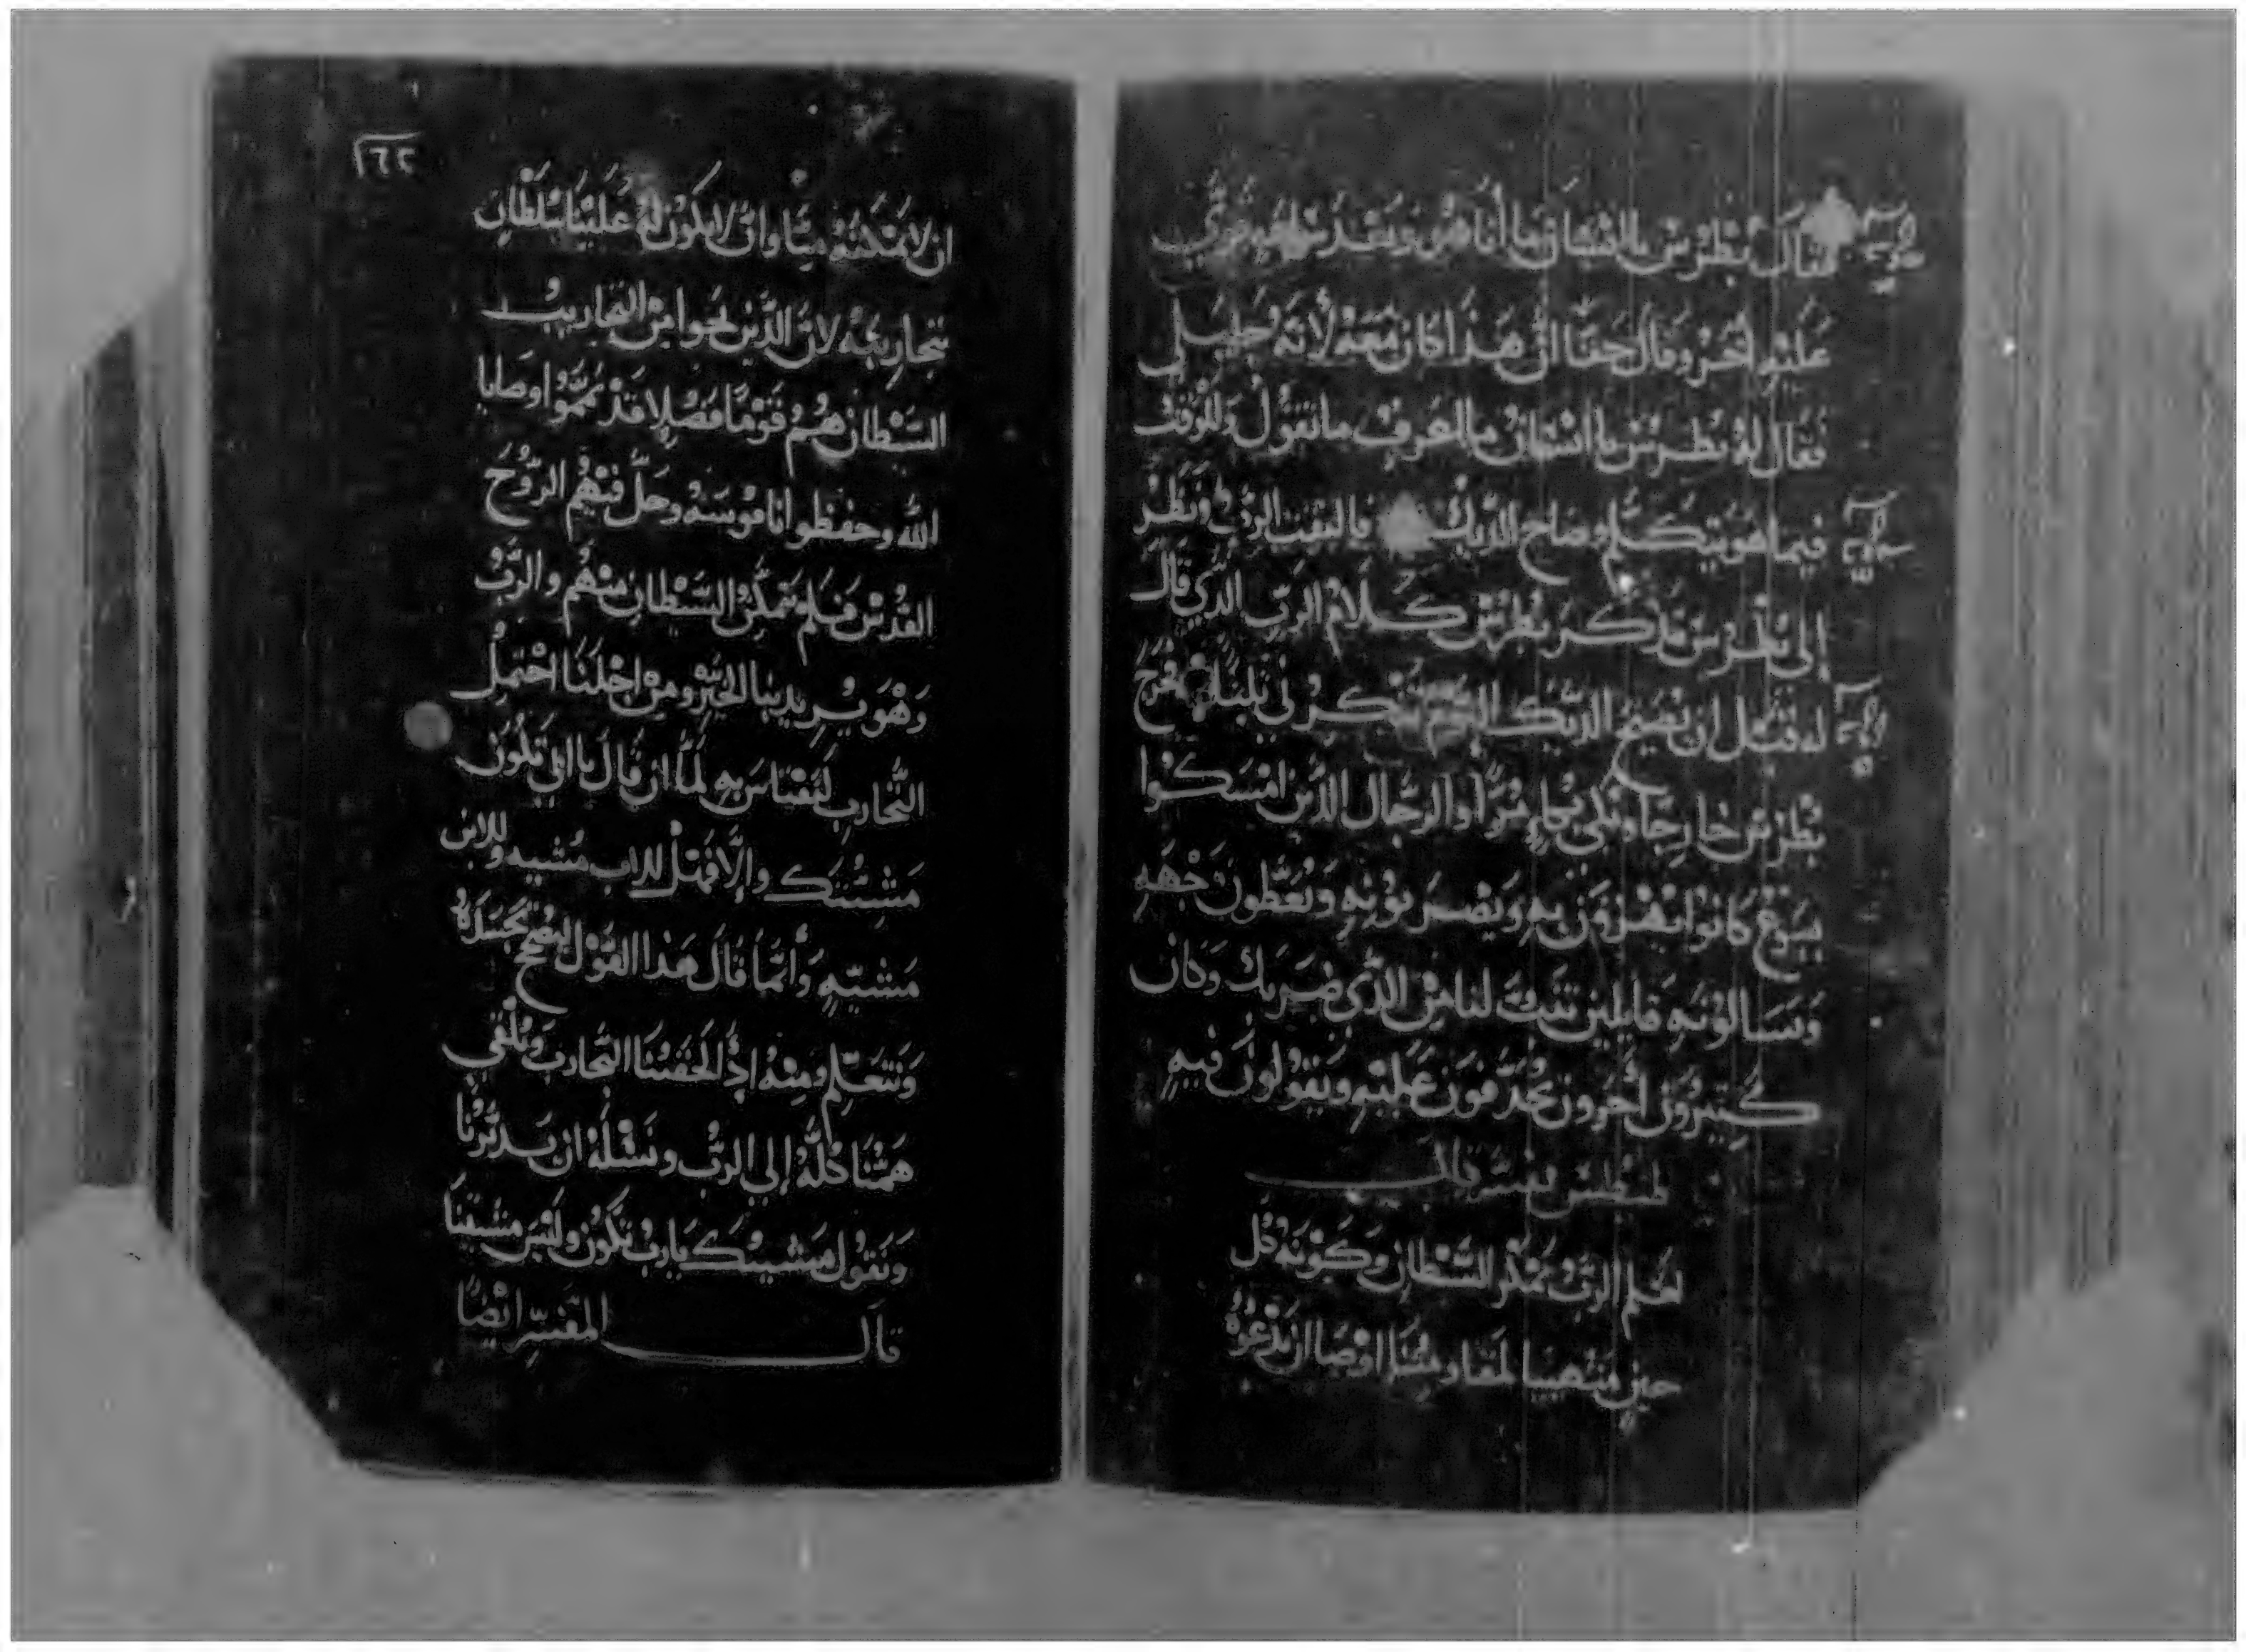 فقال بطرس يا انسان ما أنا هو وبعد
عليه أخر وقال حقا ان هذا كان معه لأنه جليلي
فقال له بطرس يا انسان ما اعرف ما تقول وللوقت
فيما هو يتكلم وصاح الديك فالتفت الرب ونظر
إلى بطرس فذكر بطرس كلام الرب الذي قال
له قبل ان يصيح الديك تنكرني ثلثا فخرج
بطرس خارجا وبكى بكاء مرا والرجال الذين امسكوا
يسوع كانوا يهزون به ويضربونه ويغطون وجهه
ويسالونه قايلين تنبت لنا من الذي ضربك وكان
كثيرون أخرون يجدفون عليه ويقولون فيه
طيطس يفسر قالـــــب
لعلم الرب بمكر الشطان وكونه كل
حين متهييا لمقاومتنا اوصا ان ندعوه
١٦٢
ان لا يمكنه منا وان لا يكون له علينا سلطان
بتجاربيه لان الذين نجوا من التجاريب
الشطان هم قوما فضلا قد تمموا وصايا
الله وحفظوا ناموسه وحل فيهم الروح
القدس فلم يتمكن الشيطان منهم والرب
وهو يريد بنا الخير ومن اجلنا احتمل
التجارب لنقتاس به لما ان قال يا ابي تكون
مشيتك والا فهل للاب مشيه وللابن
مشيه وأنما قال هذا القول ليصحح تجسده
ونتعلم منه اذا لحقتنا التجارب ونلقي
همنا كله إلى الرب ونسئله ان يدبرنا
ونقول مشيتك يارب تكون وليس مشيتنا
قالـــــ المفسر ايضا